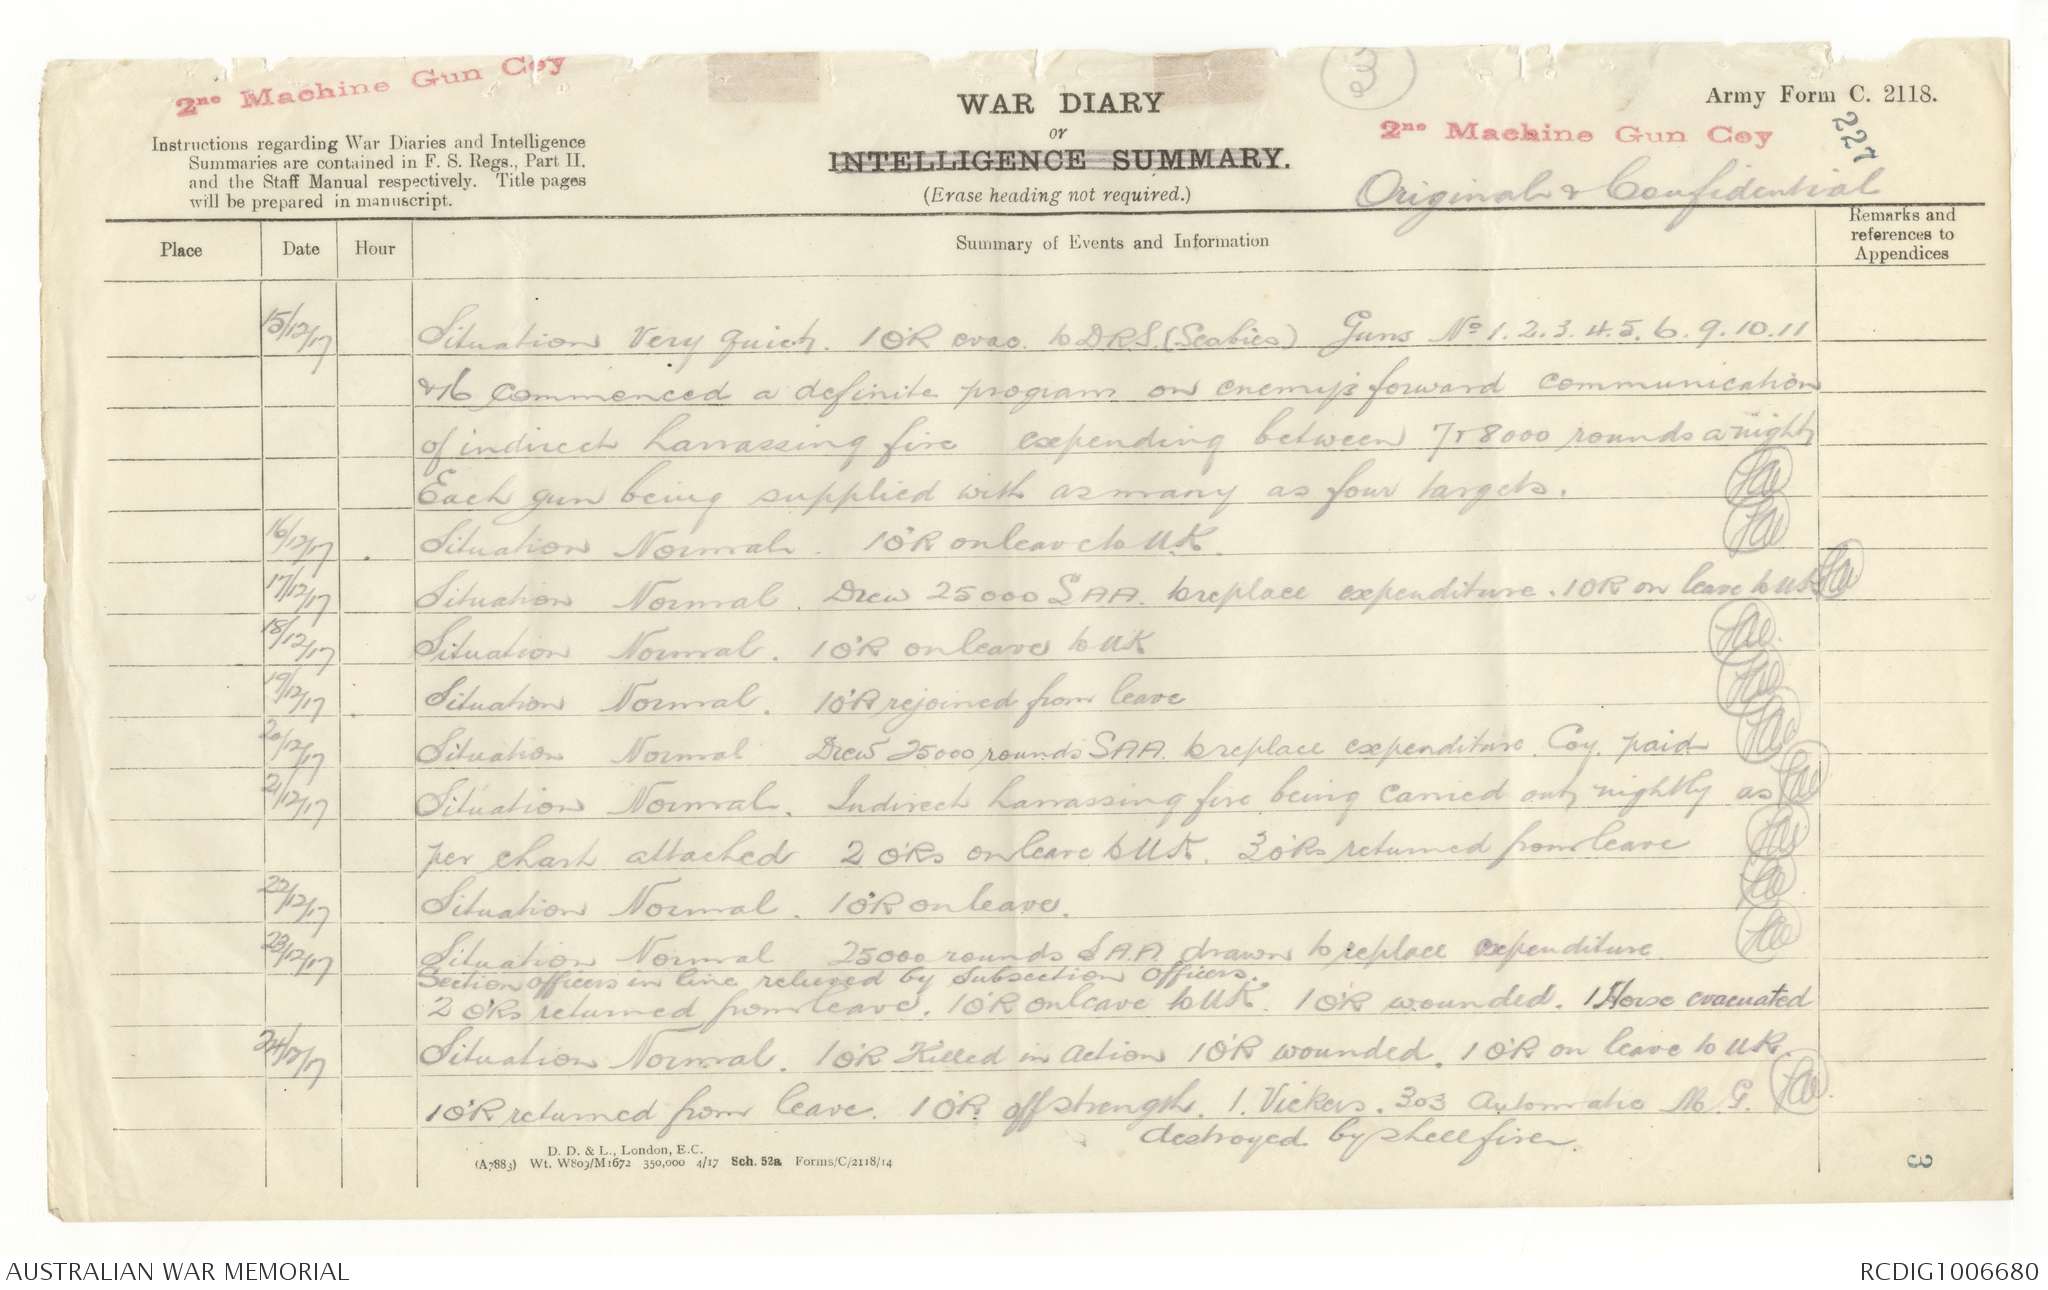 2nd Machine Gun Coy
3
WAR DIARY
or
INTELLIGENCE SUMMARY.
(Erase heading not required.)
Army Form C. 2118.
2nd Machine Gun Coy
227
Original & Confidential
Instructions regarding War Diaries and Intelligence
Summaries are contained in F. S. Regs., Part II.
and the Staff Manual respectively. Title pages
will be prepared in manuscript.
Place Date Hour Summary of Events and Information Remarks and references to Appendices
15/12/17 Situation Very quiet. 1 O'R evac. to D.R.S. (Scabies) Guns No 1. 2. 3. 4. 5. 6. 9. 10. 11
& 16 commenced a definite program on enemy's forward communication
of indirect harrassing fire expending between 7 & 8000 rounds a night
Each gun being supplied with as many as four targets.
16/12/17 Situation Normal. 1 O'R on leave to UK.
17/12/17 Situation Normal. Drew 25000 SAA. to replace expenditure. 1 OR on leave to UK
18/12/17 Situation Normal. 1 O'R on leave to UK
19/12/17 Situation Normal. 1 O'R rejoined from leave
20/12/17 Situation Normal Drew 25000 rounds SAA. to replace expenditure. Coy. paid
21/12/17 Situation Normal. Indirect harrassing fire being carried out nightly as
per chart attached 2 O'Rs on leave to UK. 3 O'Rs returned from leave
22/12/17 Situation Normal. 1 O'R on leave.
23/12/17 Situation Normal 25000 rounds S.A.A. drawn to replace expenditure.
Section officers in line relieved by Subsection Officers.
2 O'Rs returned from leave. 1 O'R on leave to UK. 1 O'R wounded. 1 Horse evacuated
24/12/17 Situation Normal. 1 O'R Killed in Action 1 O'R wounded. 1 O'R on leave to UK.
1 O'R returned from leave. 1 O'R off strength. 1. Vickers. 303 Automatic M. G.
destroyed by shellfire.
D. D. & L., London, E.C.
(A7883) Wt. W809/M1672 350,000 4/17 Sch. 52a Forms/C/2118/14
3
AUSTRALIAN WAR MEMORIAL
RCDIG1006680